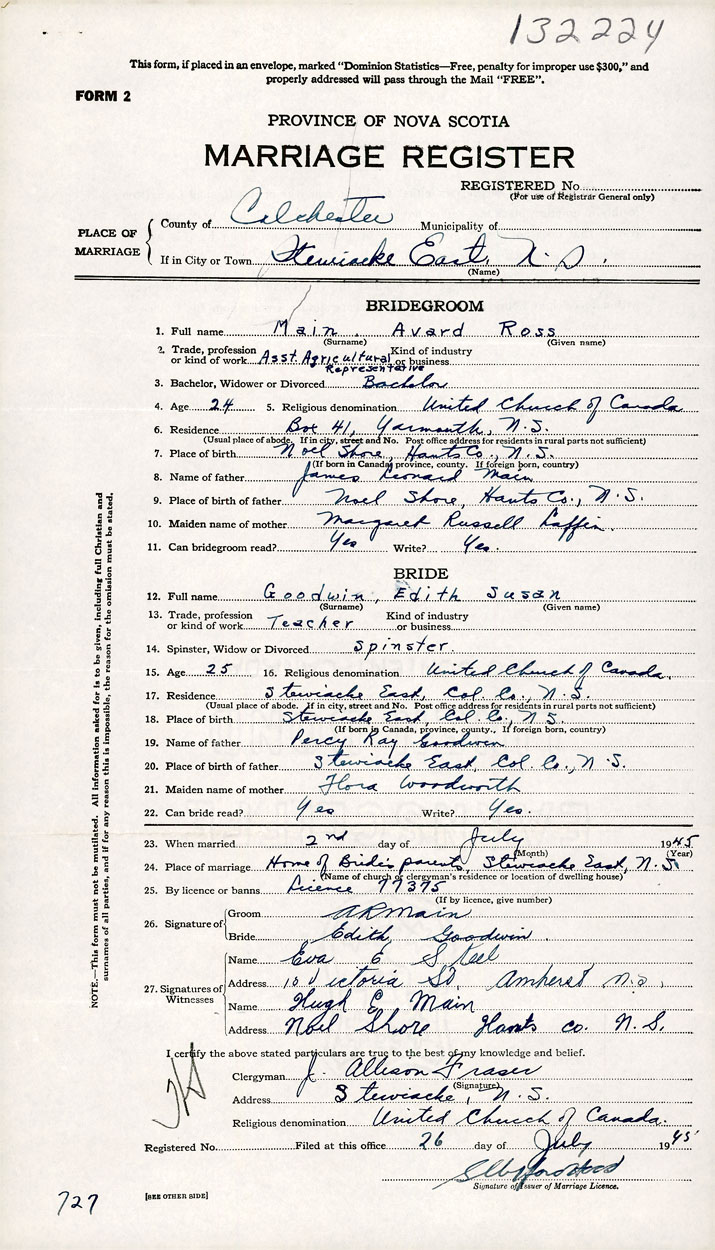 132224
This form, if placed in an envelope, marked "Dominion Statistics—Free, penalty for improper use $300," and
properly addressed will pass through the Mail "FREE".
FORM 2
PROVINCE OF NOVA SCOTIA
MARRIAGE REGISTER
REGISTERED No.
(For use of Registrar General only)
PLACE OF MARRIAGE
County of Colchester Municipality of
If in City or Town Stewiacke East, N.S.
(Name)
BRIDEGROOM
1. Full name Main, Avard Ross
(Surname) (Given name)
2. Trade, profession or kind of work Asst. Agricultural Representative Kind of industry or business
3. Bachelor, Widower or Divorced Bachelor
4. Age 24 5. Religious denomination United Church of Canada
6. Residence Box 41, Yarmouth, N.S.
(Usual place of abode. If in city, street and No. Post office address for residents in rural parts not sufficient)
7. Place of birth Noel Shore, Hants Co., N.S.
(If born in Canada, province, county. If foreign born, country)
8. Name of father James Leonard Main
9. Place of birth of father Noel Shore, Hants Co., N.S.
10. Maiden name of mother Margaret Russell Laffin
11. Can bridegroom read? Yes Write? Yes.
BRIDE
12. Full name Goodwin, Edith Susan
(Surname) (Given name)
13. Trade, profession or kind of work Teacher Kind of industry or business
14. Spinster, Widow or Divorced Spinster.
15. Age 25 16. Religious denomination United Church of Canada.
17. Residence Stewiacke East, Col. Co., N.S.
(Usual place of abode. If in city, street and No. Post office address for residents in rural parts not sufficient)
18. Place of birth Stewiacke East, Col. Co., N.S.
(If born in Canada, province, county., If foreign born, country)
19. Name of father Percy Ray Goodwin
20. Place of birth of father Stewiacke East, Col. Co., N.S.
21. Maiden name of mother Flora Woodworth
22. Can bride read? Yes Write? Yes.
23. When married 2nd day of July 1945
(Month) (Year)
24. Place of marriage Home of Bride's parents, Stewiacke East, N.S.
(Name of church or clergyman's residence or location of dwelling house)
25. By licence or banns Licence 77375
(If by licence, give number)
26. Signature of
Groom A R Main
Bride Edith Goodwin.
27. Signatures of Witnesses
Name Eva E Steel
Address Victoria St, Amherst N.S.
Name Hugh E Main
Address Noel Shore Hants Co. N.S.
I certify the above stated particulars are true to the best of my knowledge and belief.
Clergyman J. Allison Fraser
(Signature)
Address Stewiacke, N.S.
Religious denomination United Church of Canada.
Registered No. Filed at this office 26 day of July 1945
Signature of Issuer of Marriage Licence.
727
[SEE OTHER SIDE]
NOTE.—This form must not be mutilated. All information asked for is to be given, including full Christian and
surnames of all parties, and if for any reason this is impossible, the reason for the omission must be stated.